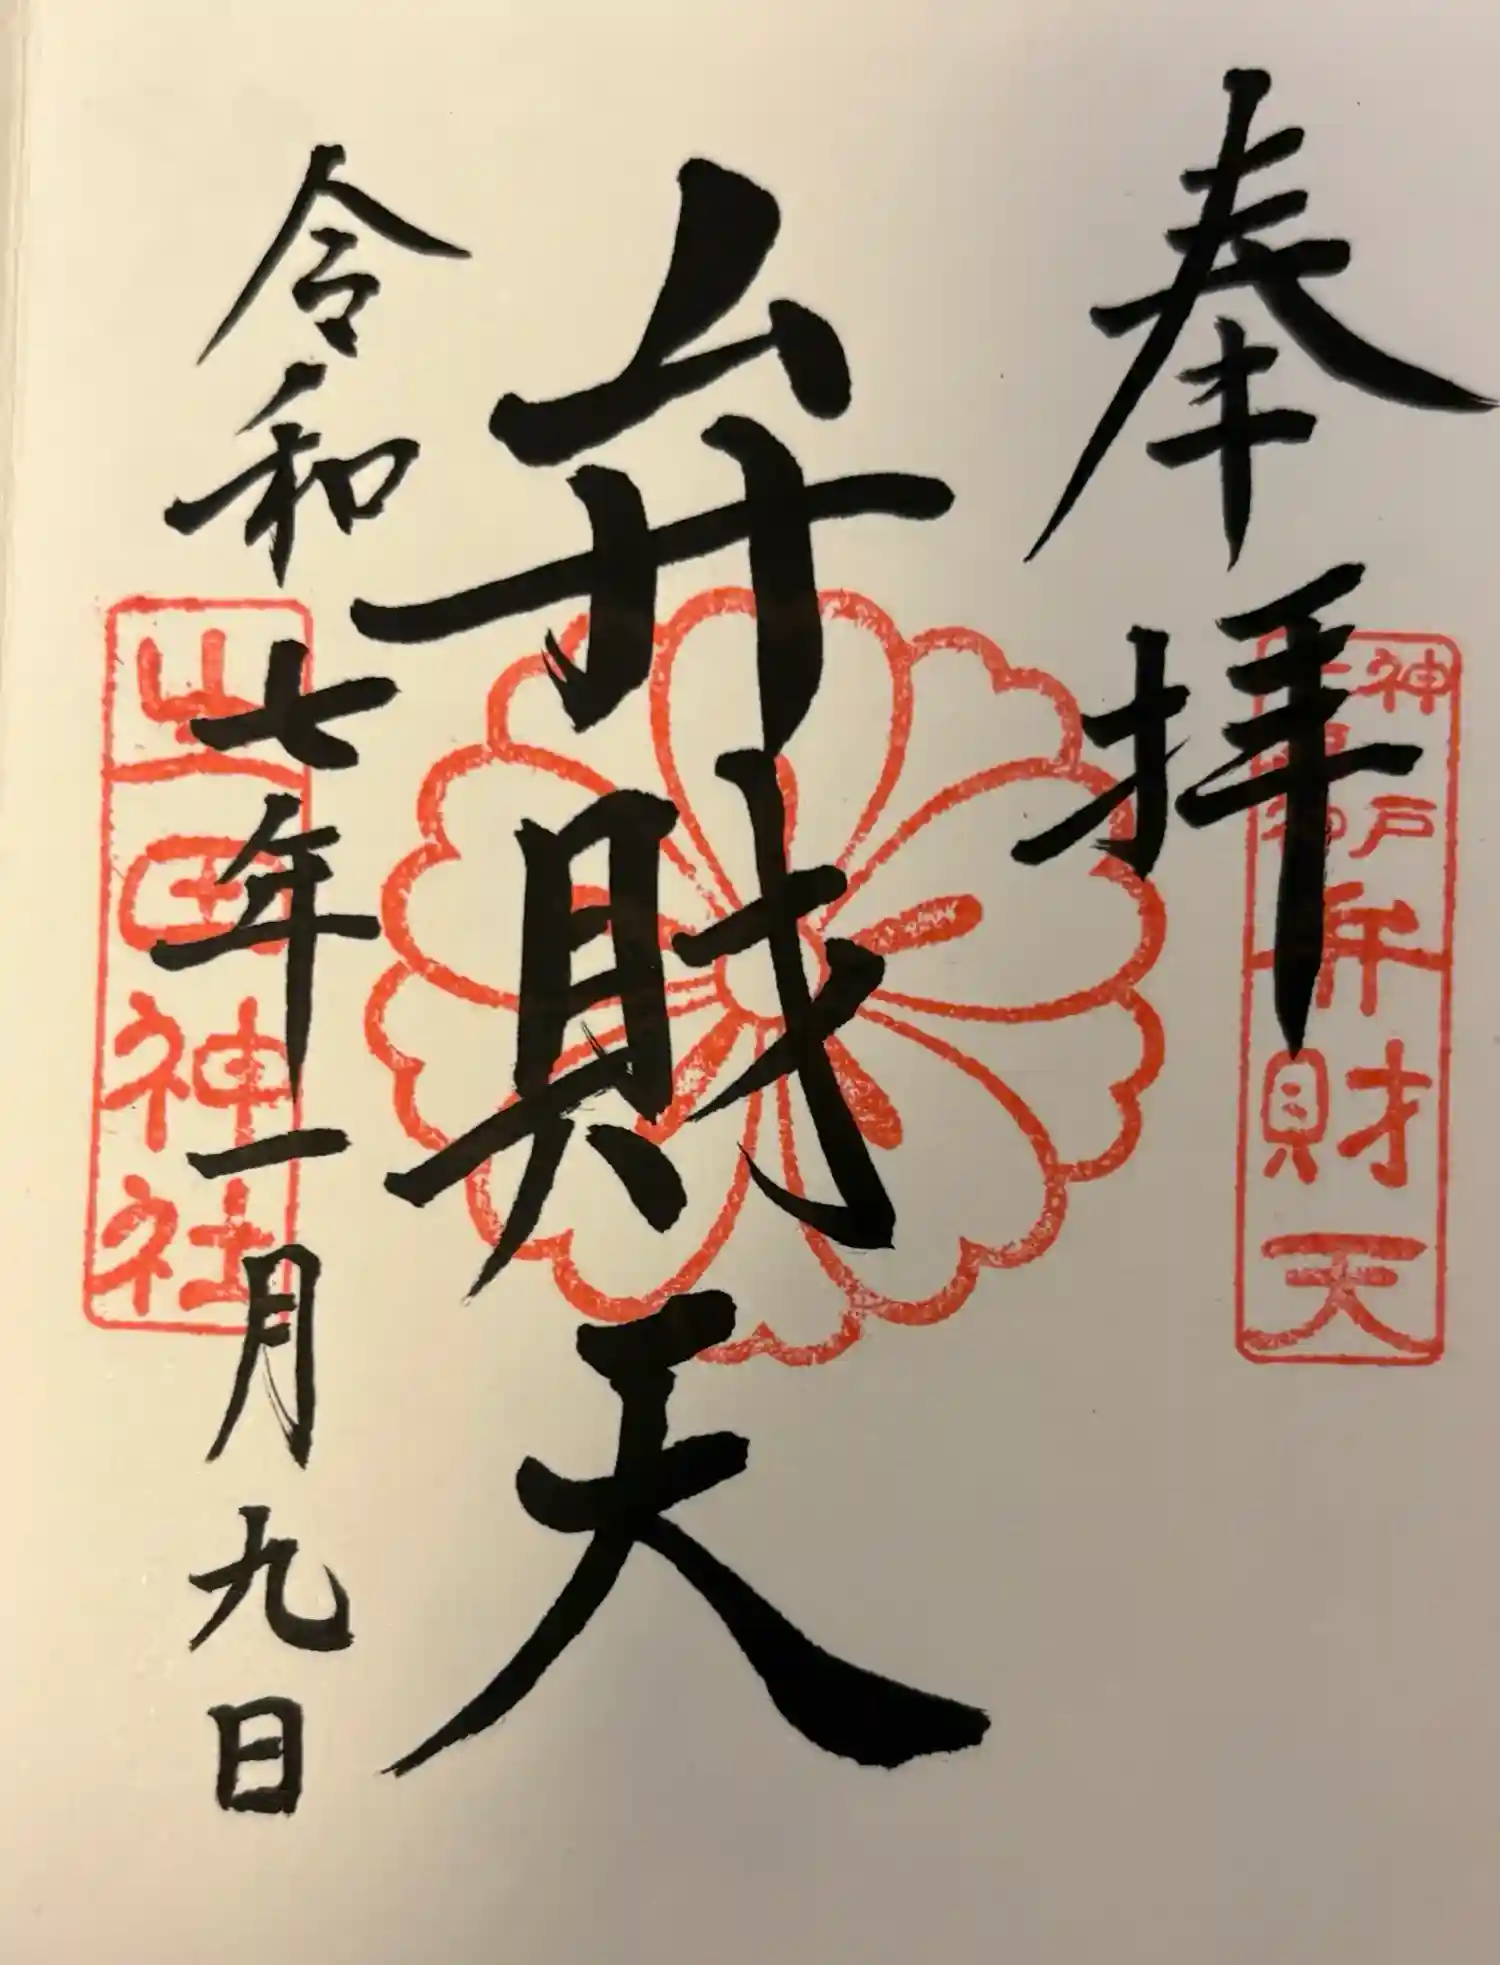 奉拝
神戸
弁財天
弁財天
令和七年一月九日
生田神社